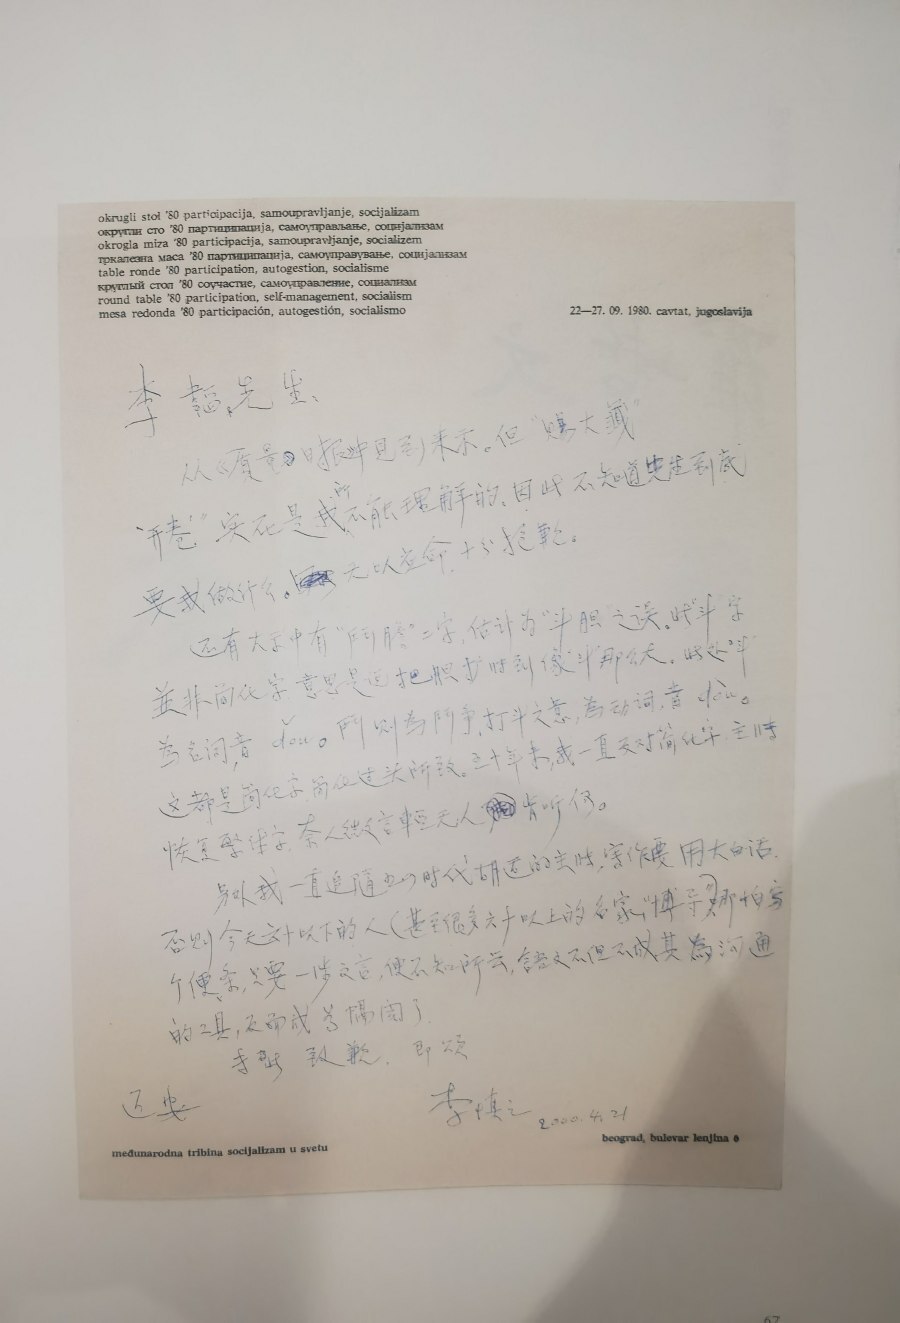 okrugli stol '80 participacija, samoupravljanje, socijalizam
округли сто '80 партиципација, самоуправљање, социјализам
okrogla miza '80 participacija, samoupravljanje, socializem
тркалезна маса '80 партиципација, самоуправување, социјализам
table ronde '80 participation, autogestion, socialisme
круглый стол '80 соучастие, самоуправление, социализм
round table '80 participation, self-management, socialism
mesa redonda '80 participación, autogestión, socialismo
22—27. 09. 1980. cavtat, jugoslavija
李韜先生、
从《质量日报》中见到来示。但"赐大籤"
"开卷"实在是我所不能理解的。因此不知道先生到底
要我做什么。无以应命,十分抱歉。
还有大示中有"鬥膽"二字,估计为"斗胆"之误。此"斗"字
並非简化字,意思是说把胆扩大到像"斗"那么大。此处"斗"
为名词,音dǒu。鬥则為鬥争,打斗之意,為动词,音dòu。
这都是简化字简化过头所致。五十年来,我一直反对简化字,主張
恢复繁体字,奈人微言輕无人肯听何。
另外我一直追随五四时代胡适的主张,写作要用大白话,
否则今天六十以下的人(甚至很多六十以上的名家,"博导")哪怕写
个便条,只要一涉文言,便不知所云,語文不但不成其為沟通
的工具,反而成為隔阂了。
专此致歉,即颂
近安
李慎之 2000.4.21
međunarodna tribina socijalizam u svetu
beograd, bulevar lenjina 6
67